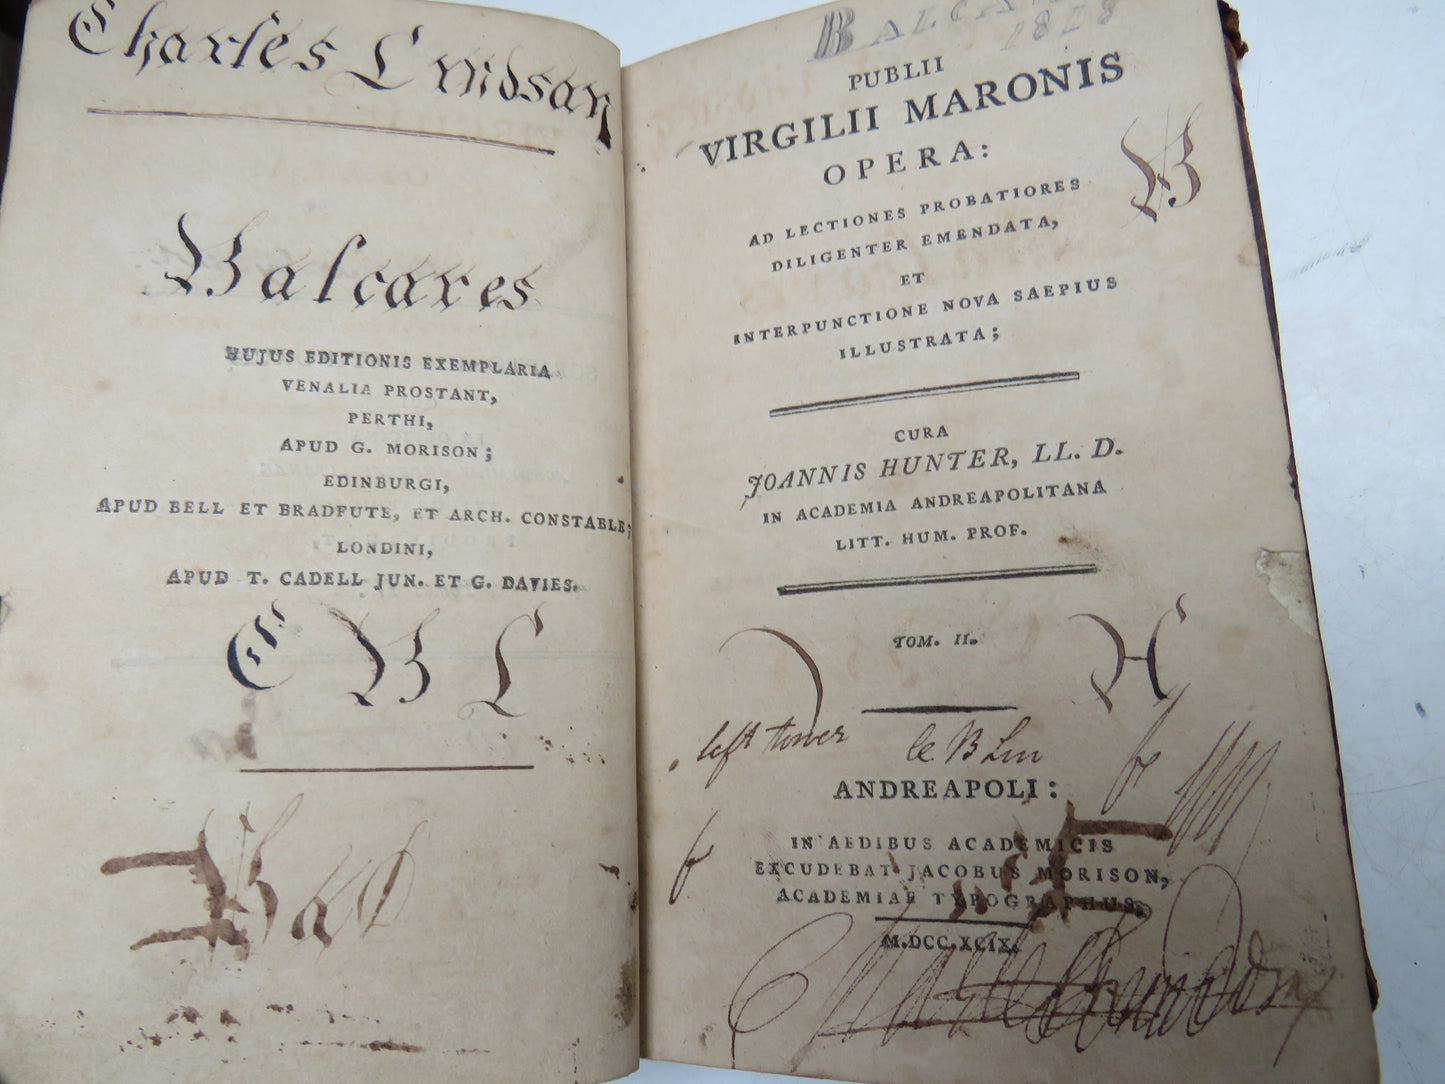 Charles Lindsay
Balcares
HUJUS EDITIONIS EXEMPLARIA
VENALIA PROSTANT,
PERTHI,
APUD G. MORISON;
EDINBURGI,
APUD BELL ET BRADFUTE, ET ARCH. CONSTABLE;
LONDINI,
APUD T. CADELL JUN. ET G. DAVIES.
C B L
Bal
BALCA
1818
PUBLII
VIRGILII MARONIS
OPERA:
B
AD LECTIONES PROBATIORES
DILIGENTER EMENDATA,
ET
INTERPUNCTIONE NOVA SAEPIUS
ILLUSTRATA;
CURA
JOANNIS HUNTER, LL. D.
IN ACADEMIA ANDREAPOLITANA
LITT. HUM. PROF.
TOM. II.
left tower
ANDREAPOLI:
IN AEDIBUS ACADEMICIS
EXCUDEBAT JACOBUS MORISON,
ACADEMIAE TYPOGRAPHUS.
M.DCC.XCIX.